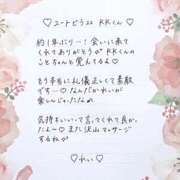 ♡ユートピラス KKくん♡
約1年ぶりー!会いに来て
くれてありがとう♡KKくんの
ことちゃんと覚えてるよ♡
もう本当に礼儀正しくて素敵
です…♡なんだかれいが
楽しんじゃったなぁ
気持ちいいって言ってくれて良か
ったよ〜♡また沢山マッサージ
するね♡
♡れい♡